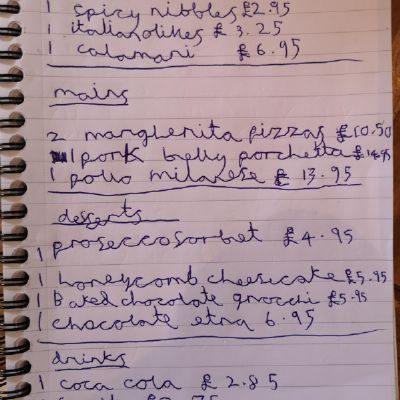 1 spicy nibbles £2.95
1 italian olives £3.25
1 calamari £6.95
mains
2 margherita pizzas £10.50
1 pork belly porchetta £14.95
1 pollo milanese £13.95
desserts
1 prosecco sorbet £4.95
1 honeycomb cheesecake £5.95
1 Baked chocolate gnocchi £5.95
1 chocolate etna 6.95
drinks
1 coca cola £2.85